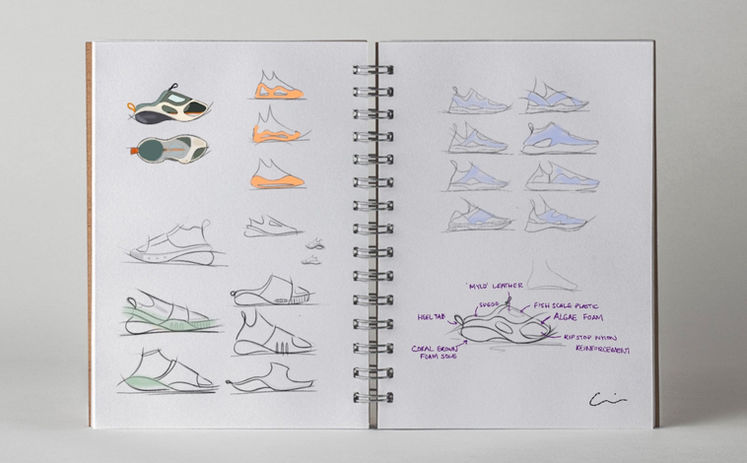 'MYLO' LEATHER
SUEDE
FISH SCALE PLASTIC
HEEL TAB
ALGAE FOAM
RIPSTOP NYLON
REINFORCEMENT
CORAL GROWN
FOAM SOLE